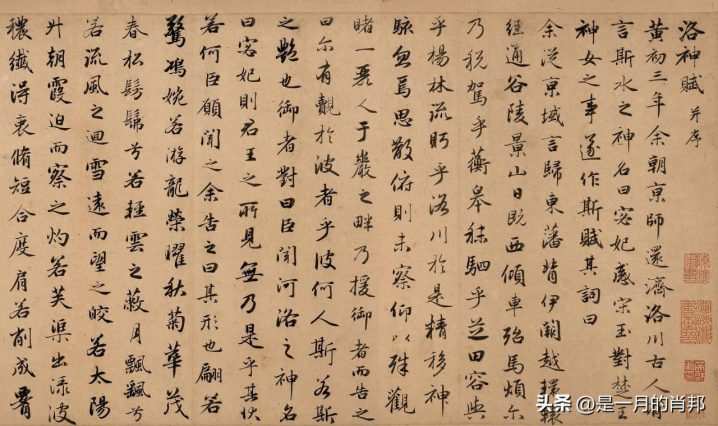 洛神賦 并序
黄初三年余朝京師還濟洛川古人有
言斯水之神名曰宓妃感宋玉對楚王
神女之事遂作斯賦其詞曰
余從京域言歸東藩背伊闕越轘轅
經通谷陵景山日既西傾車殆馬煩尔
乃税駕乎蘅皋秣駟乎芝田容與
乎楊林流眄乎洛川於是精移神
駭忽焉思散俯則未察仰以殊觀
睹一麗人于巖之畔乃援御者而告之
曰尔有覿於彼者乎彼何人斯若斯
之艷也御者對曰臣聞河洛之神名
曰宓妃則君王之所見無乃是乎其狀
若何臣願聞之余告之曰其形也翩若
驚鴻婉若游龍榮曜秋菊華茂
春松髣髴兮若輕雲之蔽月飄飖兮
若流風之迴雪遠而望之皎若太陽
升朝霞迫而察之灼若芙渠出淥波
穠纖得衷脩短合度肩若削成
头条 @是一月的肖邦